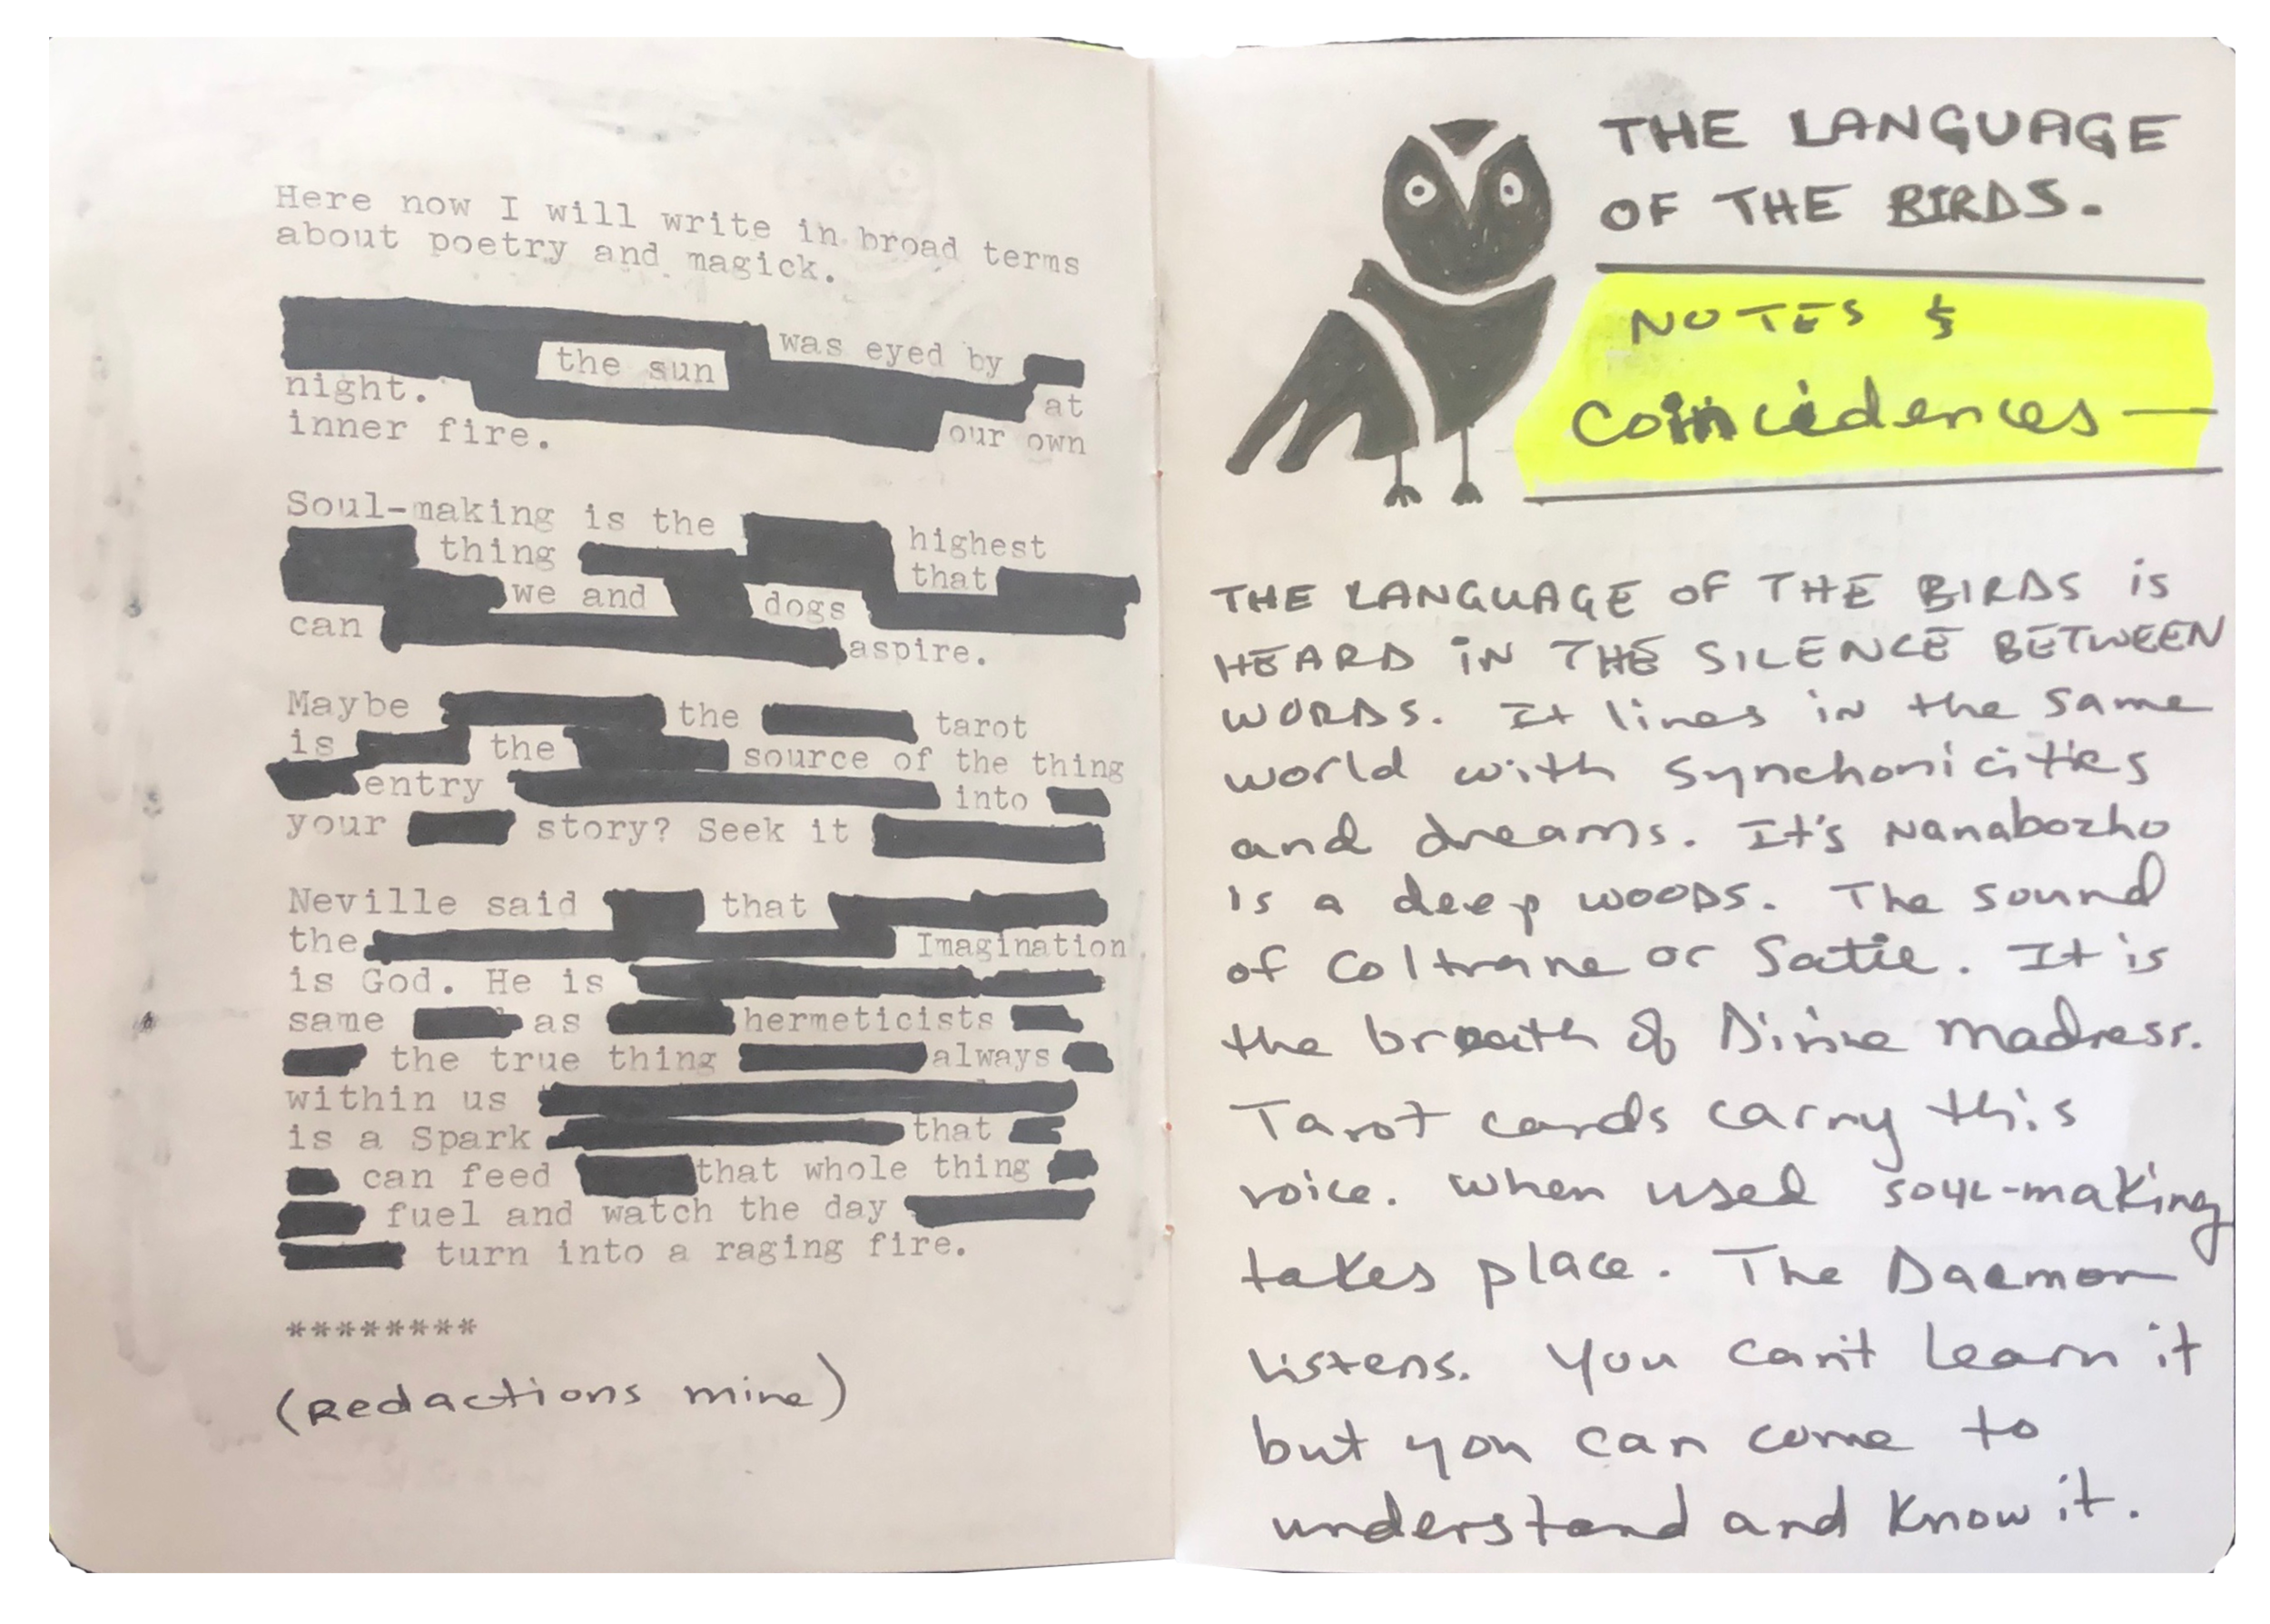 Here now I will write in broad terms
about poetry and magick.
was eyed by
the sun
night. at
inner fire. our own
Soul-making is the highest
thing that
we and dogs
can aspire.
Maybe the tarot
is the source of the thing
entry into
your story? Seek it
Neville said that
the Imagination
is God. He is
same as hermeticists
the true thing always
within us
is a Spark that
can feed that whole thing
fuel and watch the day
turn into a raging fire.
********
(Redactions mine)
THE LANGUAGE
OF THE BIRDS.
NOTES &
Coincidences—
THE LANGUAGE OF THE BIRDS is
HEARD iN THE SILENCE BETWEEN
WORDS. It lives in the same
world with synchonicities
and dreams. It's Nanabozho
is a deep woods. The sound
of Coltrane or Satie. It is
the breath of Divine Madness.
Tarot cards carry this
voice. When used soul-making
takes place. The Daemon
listens. You can't learn it
but you can come to
understand and Know it.